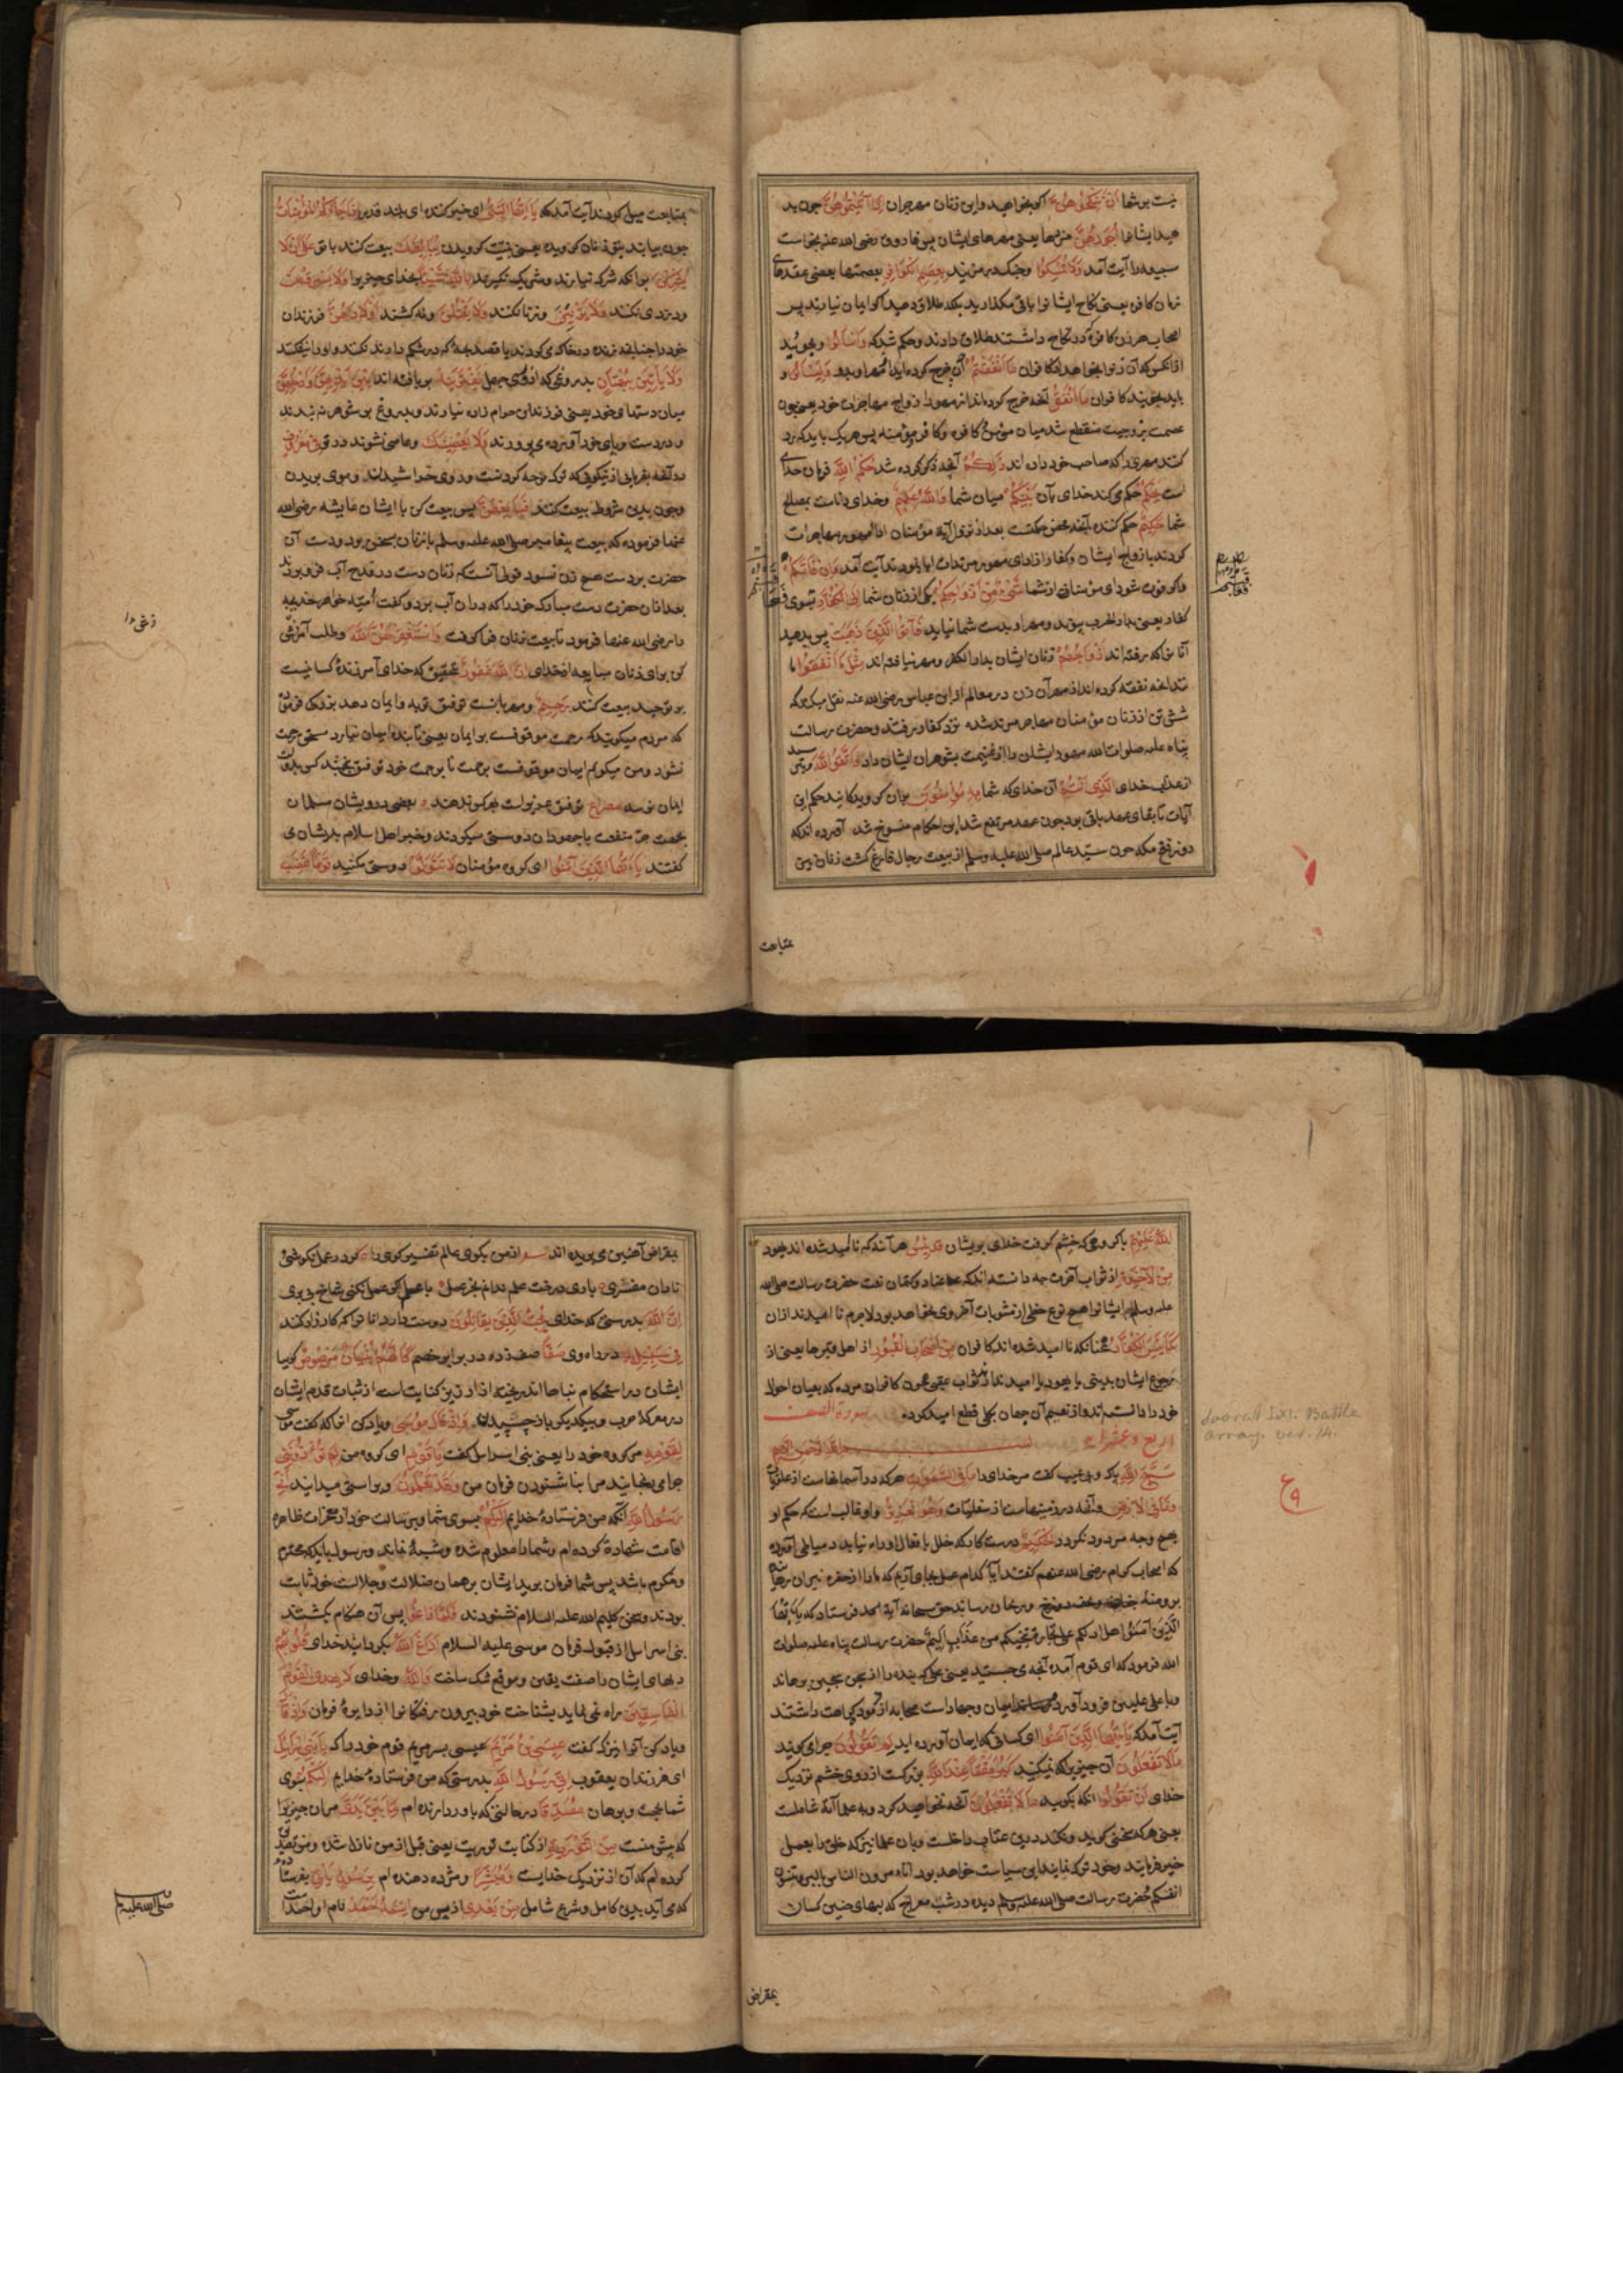 نیست بر شما اَنْ تَنْكِحُوهُنَّ آنکه بخواهید و این زنان مهاجران اِذَا آتَيْتُمُوهُنَّ چون بد
هید ایشانرا اُجُورَهُنَّ مزدها یعنی مهرهای ایشان پس فاروق رضی الله عنه بخواست
آیت آمد وَلَا تُمْسِكُوا و چنگ در مزنید بِعِصَمِ الْكَوَافِرِ بعصمتها یعنی عقدهای
زنان کافره یعنی نکاح ایشانرا باقی مگذارید بلکه طلاق دهید اگر ایمان نیارند پس
اصحاب هر زن کافره که در نکاح داشتند طلاق دادند و حکم شد که وَاسْأَلُوا و بجوئید
از آنکس که آن زنرا بخواهد از کافران مَا اَنْفَقْتُمْ آن خرج کرده‌اید از مهر او وَلْيَسْأَلُوا و
باید بجویند کافران مَا اَنْفَقُوا آنچه خرج کرده‌اند از مهور ازواج مهاجرات خود یعنی چون
عصمت زوجیت منقطع شد میان مؤمن و کافره و کافر و مؤمنه پس هر یک باید که رد
کنند مهری را که صاحب خود داده اند ذَلِكُمْ آنچه ذکر کرده شد حُكْمُ اللَّهِ فرمان خدای
است يَحْكُمُ حکم می کند خدای بآن بَيْنَكُمْ میان شما وَاللَّهُ عَلِيمٌ و خدای داناست بمصالح
شما حَكِيمٌ حکم کننده آنچه محض حکمتست بعد از نزول آیه مؤمنان ادا مهور مهاجرات
کردند بازواج ایشان و کفار از ادای مهور مرتدات ابا نمودند آیت آمد وَاِنْ فَاتَكُمْ
و اگر فوت شود ای مؤمنان از شما شَيْءٌ مِنْ اَزْوَاجِكُمْ یکی از زنان شما اِلَى الْكُفَّارِ بسوی
کفار یعنی بدار الحرب پیوند و مهر او بدست شما نیاید فَآتُوا الَّذِينَ ذَهَبَتْ پس بدهید
آنانی که رفته اند اَزْوَاجُهُمْ زنان ایشان بدار الکفر و مهر نیافته اند مِثْلَ مَا اَنْفَقُوا ما
نند آنچه نفقه کرده اند از مهر آن زن در معالم از ابن عباس رضی الله عنه نقل میکند که
شش تن از زنان مؤمنان مهاجر مرتد شده نزد کفار رفتند و حضرت رسالت
پناه علیه صلوات الله مهور ایشان را از غنیمت بشوهران ایشان داد وَاتَّقُوا اللَّهَ و بترسید
از عذاب خدای الَّذِي اَنْتُمْ آن خدای که شما بِهِ مُؤْمِنُونَ بدان گرویدگانید حکم این
آیات تا بقای عهد باقی بود چون عهد مرتفع شد این احکام منسوخ شد آورده اند که
روز فتح مکه چون سید عالم صلی الله علیه وسلم از بیعت رجال فارغ گشت زنان نیز
بمتابعت میل کردند آیت آمد که يَا اَيُّهَا النَّبِيُّ ای خبر کننده ای بلند قدر اِذَا جَاءَكَ الْمُؤْمِنَاتُ
چون بیایند بتو زنان گرویده یعنی بنیت گرویدن يُبَايِعْنَكَ بیعت کنند با تو عَلَى اَنْ لَا
يُشْرِكْنَ بر آنکه شرک نیارند و شریک نگیرند بِاللَّهِ شَيْئًا بخدای چیزیرا وَلَا يَسْرِقْنَ
و دزدی نکنند وَلَا يَزْنِينَ و زنا نکنند وَلَا يَقْتُلْنَ و نه کشند اَوْلَادَهُنَّ فرزندان
خود را چنانچه زنده در خاک می کردند یا قصد بچه که در شکم دارند نکنند و او را نیفکنند
وَلَا يَأْتِينَ بِبُهْتَانٍ بدروغی که از کسی جعل يَفْتَرِينَهُ بر بافته اند بَيْنَ اَيْدِيهِنَّ وَاَرْجُلِهِنَّ
میان دستهای خود یعنی فرزندان حرام زاده نیارند و بدروغ بر شوهر نه بندند
و در دست و پای خود آورده می پرورند وَلَا يَعْصِينَكَ و عاصی نشوند در تو فِي مَعْرُوفٍ
در آنچه بفرمائی از نیکوئی که ترک نوحه کردنست و روی خراشیدن و موی بریدن
و چون بدین شروط بیعت کنند فَبَايِعْهُنَّ پس بیعت کن با ایشان عایشه رضی الله
عنها فرموده که بیعت پیغامبر صلی الله علیه وسلم با زنان بسخن بود و دست آن
حضرت بر دست هیچ زن نسود قولی آنست که زنان دست در قدح آب فرو بردند
بعد از آن حضرت دست مبارک خود را که در آن آب برد و گفت اُمیّه خواهر خدیجه
را رضی الله عنها فرمود تا بیعت زنان فرا گرفت وَاسْتَغْفِرْ لَهُنَّ اللَّهَ و طلب آمرزش
کن برای زنان مبایعه از خدای اِنَّ اللَّهَ غَفُورٌ بتحقیق که خدای آمرزنده کسانیست
بر توحید بیعت کنند رَحِيمٌ و مهربانست توفیق توبه و ایمان دهد بزرگی فرموده
که مردم میگویند که رحمت موقوفست بر ایمان یعنی تا بنده ایمان نیارد مستحق رحمت
نشود و من میگویم ایمان موقوفست برحمت تا برحمت خود توفیق نبخشد کسی بدولت
ایمان نرسد مصراع توفیق عزیز است بهر کس ندهند بعضی درویشان مسلمان
بجهت جر منفعت با جهودان دوستی میکردند و خبر اهل اسلام بدیشان می
گفتند يَا اَيُّهَا الَّذِينَ آمَنُوا ای گروه مؤمنان لَا تَتَوَلَّوْا دوستی مکنید قَوْمًا غَضِبَ
بمتابعت
اللَّهُ عَلَيْهِمْ با گروهی که خشم گرفت خدای بر یشان قَدْ يَئِسُوا هر آنکه نا امید شده اند جهود
مِنَ الْآخِرَةِ از ثواب آخرت چه دانسته اند که عناد و کتمان نعت حضرت رسالت صلی الله
علیه وسلم ایشانرا هیچ نوع حظی از مثوبات آخروی نخواهد بود لاجرم نا امیدند از آن
كَمَا يَئِسَ الْكُفَّارُ همچنانکه نا امید شده اند کافران مِنْ اَصْحَابِ الْقُبُورِ از اهل قبرها یعنی از
رجوع ایشان بدنیا
خود را دانسته اند و از نعیم آن جهان بکلی قطع امید کرده سورة الصف
اربع و عشر آیه بسم الله الرحمن الرحیم
سَبَّحَ لِلَّهِ بپاکی و بی عیب گفت مر خدای را مَا فِي السَّمَوَاتِ هر که در آسمانهاست از علویات
وَمَا فِي الْاَرْضِ و آنچه در زمینهاست از سفلیات وَهُوَ الْعَزِيزُ و او غالب است که حکم او
بهیچ وجه مردود نگردد الْحَكِيمُ درست کار که خلل بافعال او راه نیابد
که اصحاب کرام رضی الله عنهم گفتند آیا کدام عمل بجای آریم که ما را از حفره نیران
الَّذِينَ آمَنُوا هل ادلکم علی تجارة تنجیکم من عذاب الیم حضرت رسالت پناه علیه صلوات
الله فرمود که ای قوم آمد آنچه می جستید یعنی عملی که بنده را از سجن سجین برهاند
آیت آمد که يَا اَيُّهَا الَّذِينَ آمَنُوا ای کسانی که ایمان آورده اید لِمَ تَقُولُونَ چرا می گویند
مَا لَا تَفْعَلُونَ آن چیزی را که نمیکنید كَبُرَ مَقْتًا عِنْدَ اللَّهِ بزرگست از روی خشم نزدیک
خدای اَنْ تَقُولُوا آنکه بگویید مَا لَا تَفْعَلُونَ آنچه نخواهید کرد
یعنی هر که سخنی گوید و نکند درین عتاب داخلست
انفسکم حضرت رسالت صلی الله علیه وسلم دیده در شب معراج که لبهای چنین کسان
Soorah Lxi. Battle
array. ver. 14.
بمقراض
بمقراض آتشین می بریده اند از من بگوی عالم تفسیر گوی را گر در عمل نکوشی
نادان مفسری بار درخت علم ندانم بجز عمل با علم اگر عمل نکنی شاخ بی بری
اِنَّ اللَّهَ بدرستی که خدای يُحِبُّ الَّذِينَ يُقَاتِلُونَ دوست دارد آنانرا که کارزار کنند
فِي سَبِيلِهِ در راه وی صَفًّا صف زده در برابر خصم كَاَنَّهُمْ بُنْيَانٌ مَرْصُوصٌ گویا
ایشان در استحکام بناها اند ریخته از ارزیز کنایت است از ثبات قدم ایشان
در معرکه حرب و بیکدیگر باز چسپیدن وَاِذْ قَالَ مُوسَى و یاد کن آنرا که گفت موسی
لِقَوْمِهِ مر گروه خود را یعنی بنی اسراییل گفت يَا قَوْمِ ای گروه من لِمَ تُؤْذُونَنِي
چرا می رنجانید مرا بنا شنودن فرمان من وَقَدْ تَعْلَمُونَ و براستی میدانید اَنِّي
رَسُولُ اللَّهِ آنکه من فرستادهٔ خدایم اِلَيْكُمْ بسوی شما و بر رسالت خود از معجزات ظاهره
اقامت شهادة کرده ام و شما را معلوم شده و شبهه نماند و رسول باید که محترم
و مکرم باشد پس شما فرمان برید ایشان بر همان ضلالت و جهالت خود ثابت
بودند و سخن کلیم الله علیه السلام نشنودند فَلَمَّا زَاغُوا پس آن هنگام بگشتند
بنی اسراییل از قبول فرمان موسی علیه السلام اَزَاغَ اللَّهُ بگردانید خدای قُلُوبَهُمْ
دلهای ایشان را صفت یقین و موقع شک ساخت وَاللَّهُ و خدای لَا يَهْدِي الْقَوْمَ
الْفَاسِقِينَ راه نمی نماید بشناخت خود بیرون رفتگانرا از دایرهٔ فرمان وَاِذْ قَالَ
و یاد کن آنرا نیز که گفت عِيسَى بْنُ مَرْيَمَ عیسی پسر مریم قوم خود را که يَا بَنِي اِسْرَائِيلَ
ای فرزندان یعقوب اِنِّي رَسُولُ اللَّهِ بدرستی که من فرستادهٔ خدایم اِلَيْكُمْ بسوی
شما بحجت و برهان مُصَدِّقًا در حالتی که باور دارنده ام لِمَا بَيْنَ يَدَيَّ مر آن چیزیرا
که پیش منست مِنَ التَّوْرَيةِ از کتابت توریت یعنی قبل از من نازل شده و من تصدیق
کرده ام که آن از نزدیک خدایست وَمُبَشِّرًا و مژده دهنده ام بِرَسُولٍ يَأْتِي بفرستاده
که می آید بدین کامل و شرع شامل مِنْ بَعْدِي از پس من اسْمُهُ اَحْمَدُ نام او احمد است
صلی الله علیه وسلم